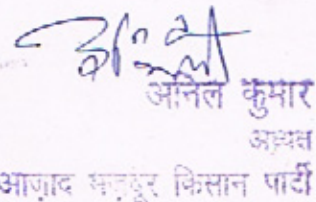 अनिल
अनिल कुमार
अध्यक्ष
आज़ाद मज़दूर किसान पार्टी